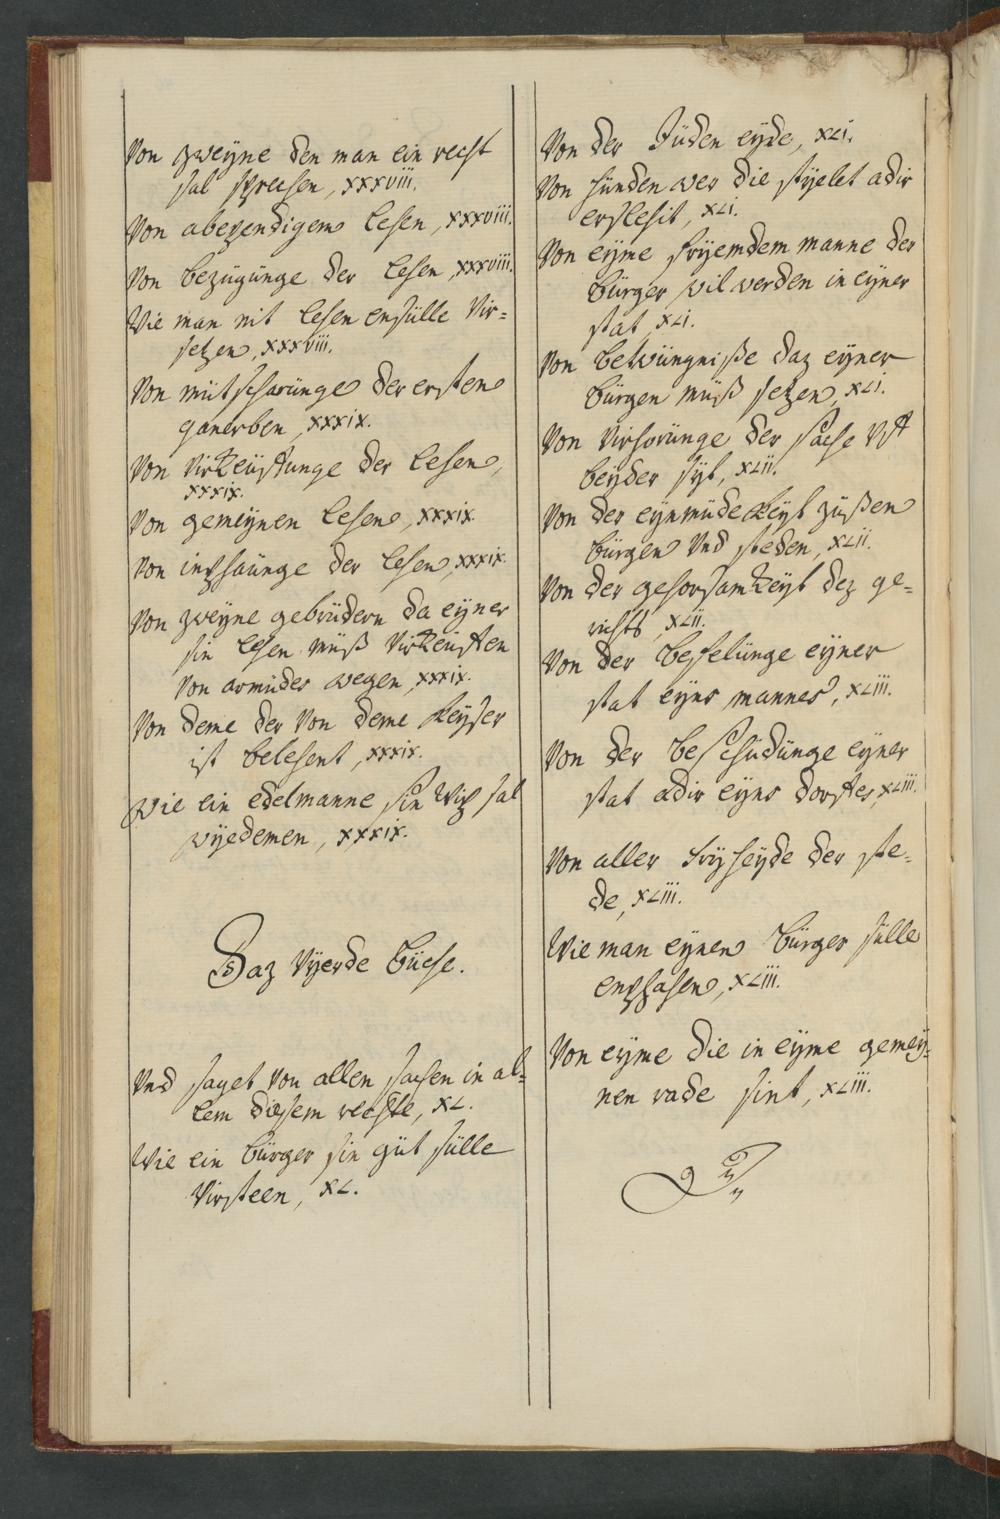 Von zweyne den man ein recht
sal sprechen, xxxviii.
Von abewendigem lehen, xxxviii.
Von bezugunge der lehen, xxxviii.
Wie man mit lehen ensülle vir-
setzen, xxxviii.
Von mutscharünge der ersten
ganerben, xxxix.
Von virkeüffunge der lehen,
xxxix.
Von gemeynen lehen, xxxix.
Von inphaünge der lehen, xxxix.
Von zweyne gebrüdern da eyner
sin lehen müß virkeüffen
von armüdes wegen, xxxix.
Von deme der von deme keyser
ist belehent, xxxix.
Wie ein edelmanne sin wip sal
wyedemen, xxxix.
Daz vyerde büche.
Vnd saget von allen sachen in al-
lem diesem rechte, xL.
Wie ein bürger sin güt sülle
virsteen, xL.
Von der Jüden eyde, xLi.
Von hünden wer die styelet adir
erslehit, xLi.
Von eyme fryemdem manne der
bürger wil werden in eyner
stat, xLi.
Von betwüngniße daz eyner
bürgen müß setzen, xLi.
Von virhorünge der sache vff
beyder syt, xLii.
Von der eynmüdekeyt züßen
bürgen vnd steden, xLii.
Von der gehorsamkeyt dez ge-
richts, xLii.
Von der befelünge eyner
stat eyns mannes, xLiii.
Von der beschüdünge eyner
stat adir eyns dorffes, xLiii.
Von aller fryheyde der ste-
de, xLiii.
Wie man eynen bürger sülle
enphahen, xLiii.
Von eyme die in eyme gemey-
nen rade sint, xLiii.